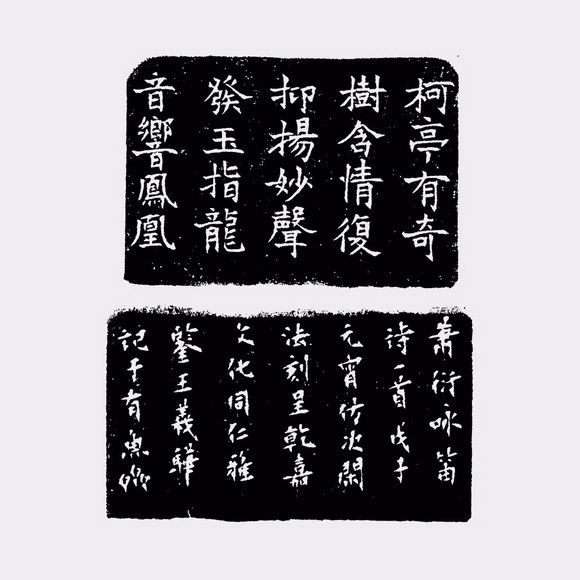 柯亭有奇
樹含情復
抑揚妙聲
發玉指龍
音響鳳凰
蕭衍咏笛
詩一首戊子
元宵仿次閑
法刻呈乾嘉
文化同仁雅
鑒王義驊
記于有魚齋